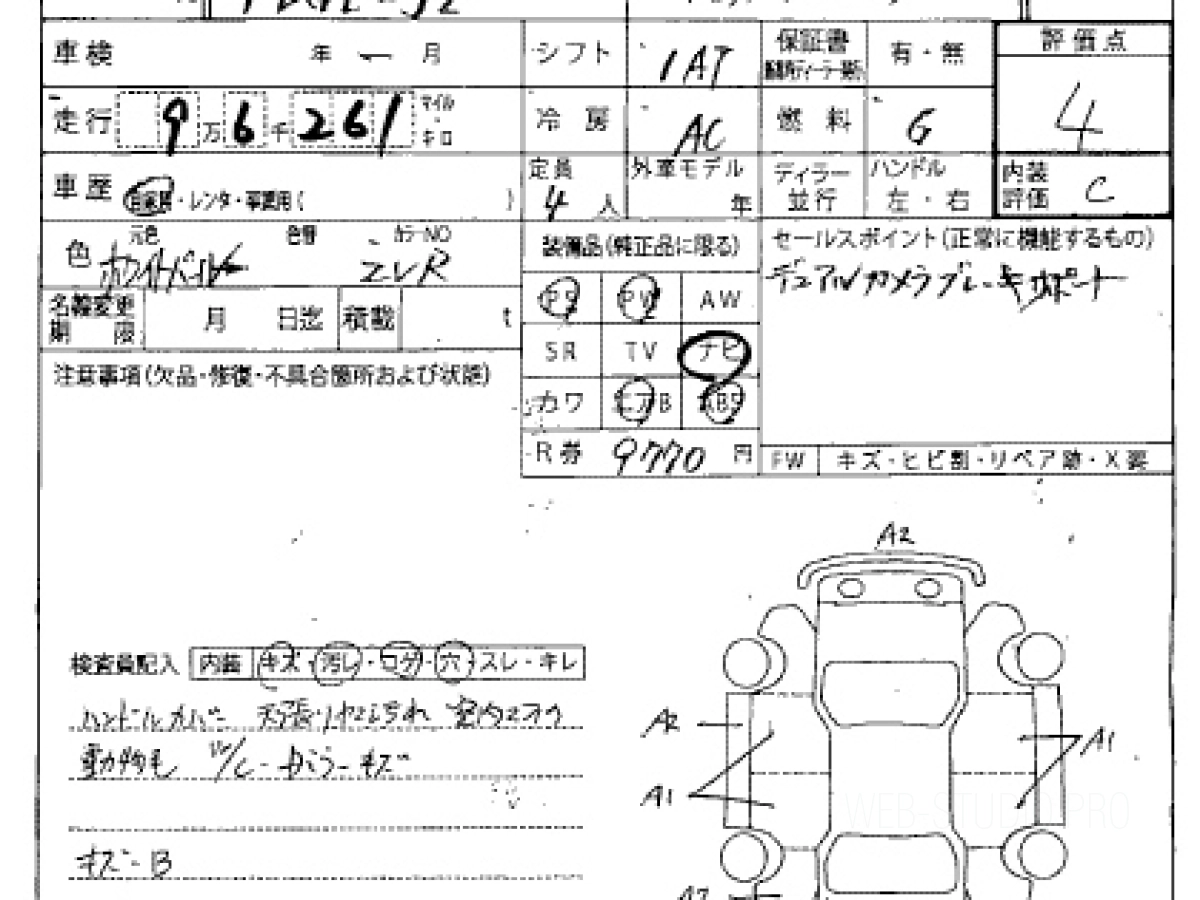 車検 年 - 月 シフト IAT 保証書 有・無 評価点
走行 9万6千261 マイル キロ 冷房 AC 燃料 G 4
車歴 自家用・レンタ・事業用( ) 定員 4人 外車モデル 年 ディラー 並行 ハンドル 左・右 内装評価 C
色 元色 色替 カラーNO
ホワイトパール ZVR
装備品(純正品に限る) セールスポイント(正常に機能するもの)
デュアルカメラブレーキサポート
名義変更期限 月 日迄 積載 t
PS PW AW
SR TV ナビ
カワ エアB ABS
R券 9770 円
FW キズ・ヒビ割・リペア跡・X要
注意事項(欠品・修復・不具合箇所および状態)
A2
検査員記入 内装 キズ・汚レ・コゲ・穴・スレ・キレ
ハンドルカバー 天張 汚れ 室内ニオウ
動物毛 キズ
キズ B
A2
A1
A1
WEB-STUDIO PRO